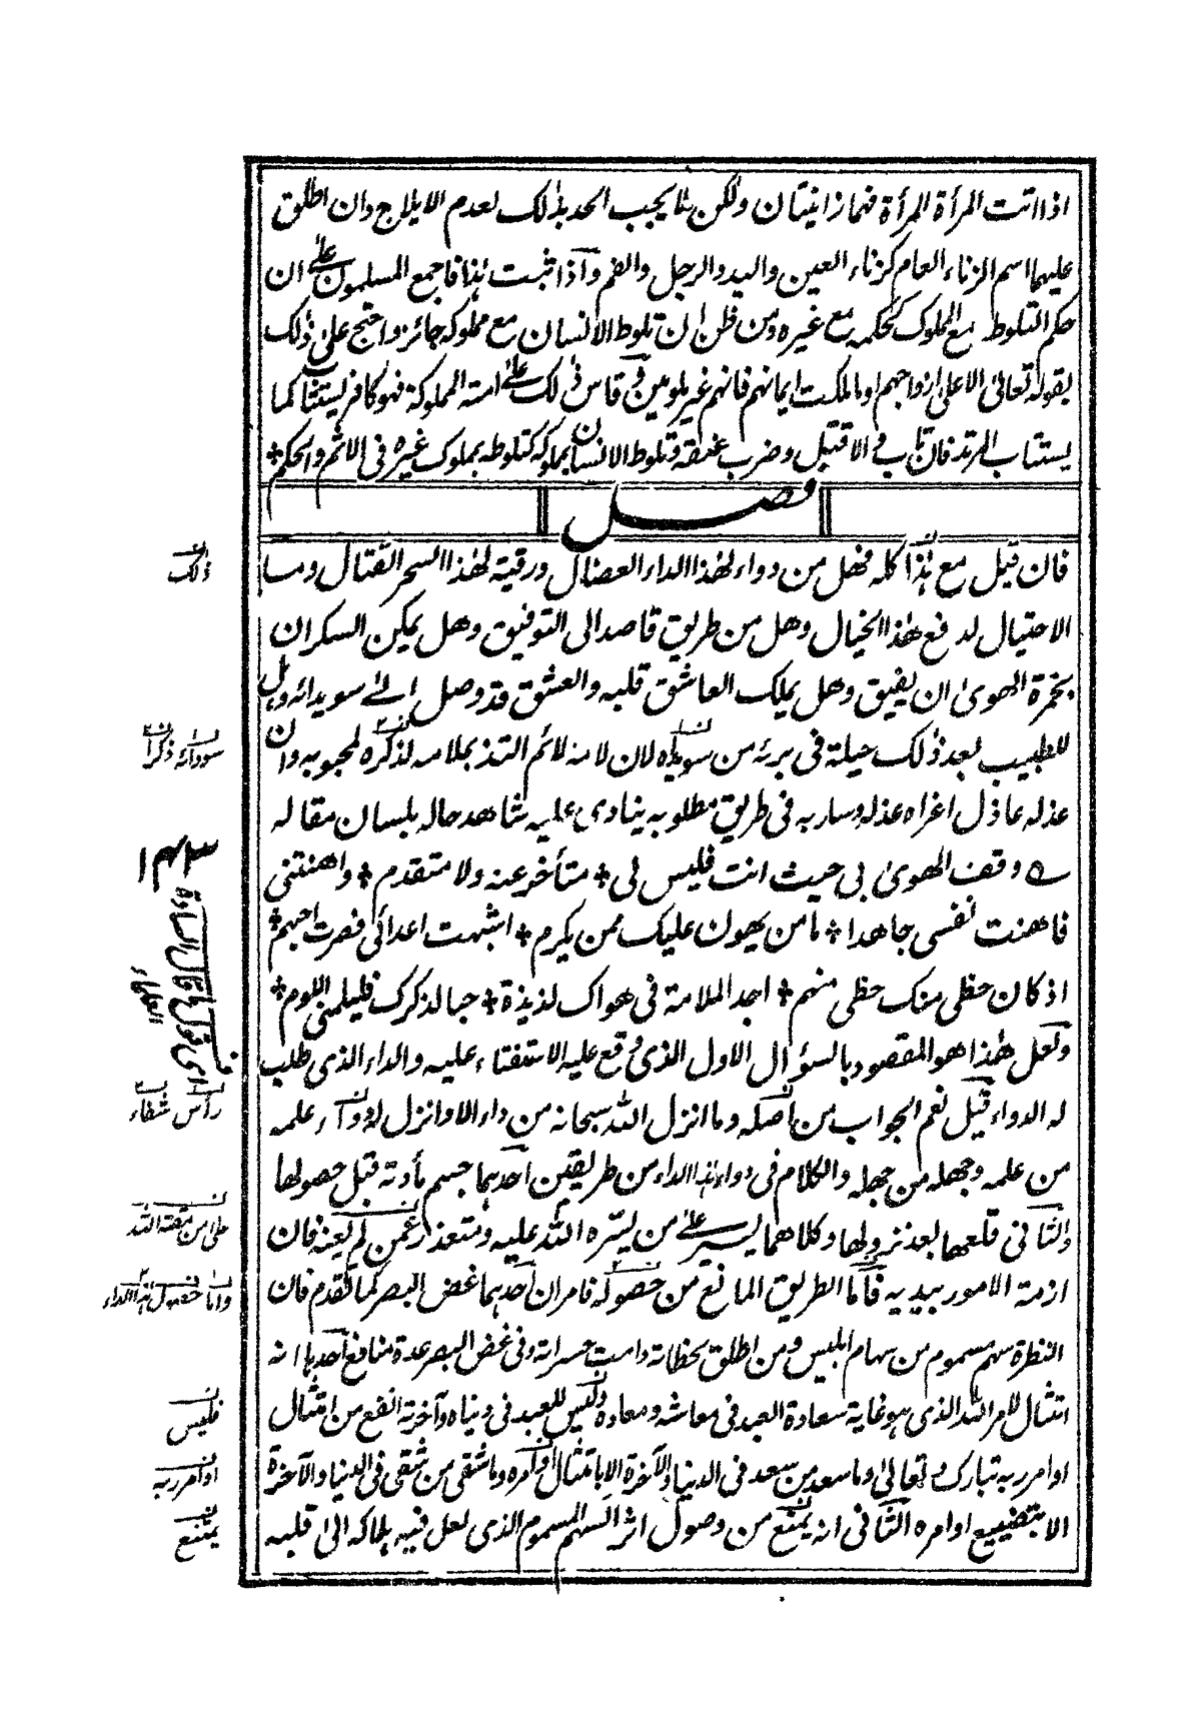 اذا اتت المرأة المرأة فهما زانيتان ولكن لا يجب الحد بذلك لعدم الايلاج وان اطلق
عليهما اسم الزناء العام كزناء العين واليد والرجل والفم واذا ثبت هذا فاجمع المسلمون على ان
حكم التلوط مع المملوك كحكمه مع غيره ومن ظن ان تلوط الانسان مع مملوكه جائز واحتج على ذلك
بقوله تعالى الا على ازواجهم او ما ملكت ايمانهم فانهم غير ملومين وقاس ذلك على امته المملوكة فهو كافر يستتاب كما
يستتاب المرتد فان تاب والا قتل وضرب عنقه وتلوط الانسان بمملوكه كتلوطه بمملوك غيره فى الاثم والحكم *
فصل
فان قيل مع هذا كله فهل من دواء لهذا الداء العضال ورقية لهذا السحر القتال وما
الاحتيال لدفع هذا الخيال وهل من طريق قاصد الى التوفيق وهل يمكن السكران
بخمرة الهوى ان يفيق وهل يملك العاشق قلبه والعشق قد وصل الى سويدائه وهل
للطبيب بعد ذلك حيلة فى برئه من سويداه لان لامه لائم التذ بملامه لذكره لمحبوبه وان
عذله عاذل اغراه عذله وسار به فى طريق مطلوبه ينادى عليه شاهد حاله بلسان مقاله
وقف الهوى بى حيث انت فليس لى * متأخر عنه ولا متقدم * واهنتنى
فاهنت نفسى جاهدا * ما من يهون عليك ممن يكرم * اشبهت اعدائى فصرت احبهم *
اذ كان حظى منك حظى منهم * اجد الملامة فى هواك لذيذة * حبا لذكرك فليلمنى اللوم *
ولعل هذا هو المقصود بالسؤال الاول الذى وقع عليه الاستفتاء عليه والداء الذى طلب
له الدواء قيل نعم الجواب من اصله وما انزل الله سبحانه من داء الا وانزل له دواء علمه
من علمه وجهله من جهله والكلام فى دواء هذا الداء من طريقين احدهما حسم مادته قبل حصولها
والثانى قلعها بعد نزولها وكلاهما يسير على من يسره الله عليه ومتعذر عمن لم يعنه فان
ازمة الامور بيديه فاما الطريق المانع من حصوله فامران احدهما غض البصر كما تقدم فان
النظرة سهم مسموم من سهام ابليس ومن اطلق لحظاته دامت حسراته وفى غض البصر عدة منافع احدها انه
امتثال لامر الله الذى هو غاية سعادة العبد فى معاشه ومعاده وليس للعبد فى دنياه وآخرته انفع من امتثال
اوامر ربه تبارك وتعالى وما سعد من سعد فى الدنيا والآخرة الا بامتثال اوامره وما شقى من شقى فى الدنيا والآخرة
الا بتضييع اوامره الثانى انه يمنع من وصول اثر السهم المسموم الذى لعل فيه هلاكه الى قلبه
ذلك
سودائه ذكرا
رأس شفاء
وانا حصول هذا الداء
فليس
اوامر ربه
يمتنع